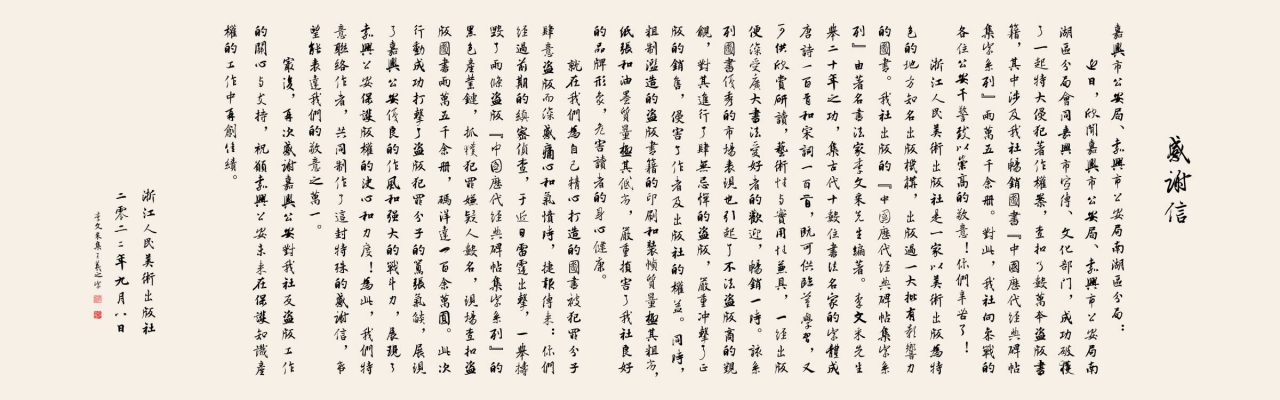 感謝信
嘉興市公安局、嘉興市公安局南湖區分局:
近日,欣聞嘉興市公安局、嘉興市公安局南
湖區分局會同嘉興市宣傳、文化部門,成功破獲
了一起特大侵犯著作權案,查扣了數萬本盜版書
籍,其中涉及我社暢銷圖書『中國歷代經典碑帖
集字系列』兩萬五千余冊。對此,我社向參戰的
各位公安干警致以崇高的敬意!你們辛苦了!
浙江人民美術出版社是一家以美術出版為特
色的地方知名出版機構,出版過一大批有影響力
的圖書。我社出版的『中國歷代經典碑帖集字系
列』由著名書法家李文采先生編著。李文采先生
舉二十年之功,集古代十數位書法名家的字體成
唐詩一百首和宋詞一百首,既可供臨摹學習,又
可供欣賞研讀,藝術性與實用性兼具,一經出版
便深受廣大書法愛好者的歡迎,暢銷一時。該系
列圖書優秀的市場表現也引起了不法盜版商的覬
覦,對其進行了肆無忌憚的盜版,嚴重冲擊了正
版的銷售,侵害了作者及出版社的權益。同時,
粗制濫造的盜版書籍的印刷和裝幀質量極其粗劣,
紙張和油墨質量極其低劣,嚴重損害了我社良好
的品牌形象,危害讀者的身心健康。
就在我們為自己精心打造的圖書被犯罪分子
肆意盜版而深感痛心和氣憤時,捷報傳來:你們
經過前期的縝密偵查,于近日雷霆出擊,一舉搗
毀了兩條盜版『中國歷代經典碑帖集字系列』的
黑色產業鏈,抓獲犯罪嫌疑人數名,現場查扣盜
版圖書兩萬五千余冊,碼洋達一百余萬圓。此次
行動成功打擊了盜版犯罪分子的囂張氣燄,展現
了嘉興公安優良的作風和强大的戰斗力,展現了
嘉興公安保護版權的決心和力度!為此,我們特
意聯絡作者,共同制作了這封特殊的感謝信,希
望能表達我們的敬意之萬一。
最後,再次感謝嘉興公安對我社反盜版工作
的關心与支持,祝願嘉興公安未來在保護知識產
權的工作中再創佳績。
浙江人民美術出版社
二零二二年九月八日
李文采集王羲之字